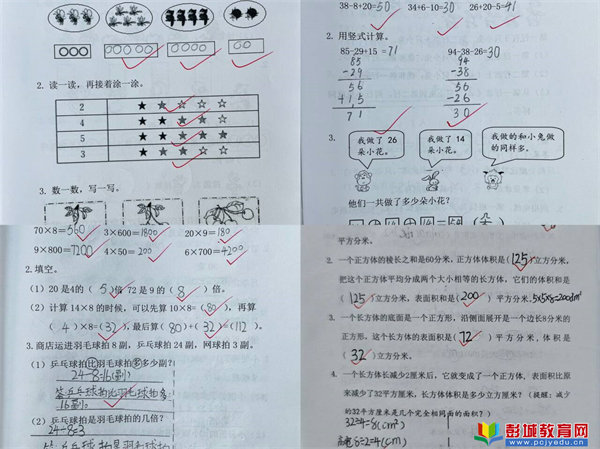 2. 读一读，再接着涂一涂。
2 ★ ★ ☆ ☆ ☆
4 ★ ★ ★ ★ ☆
5 ★ ★ ★ ★ ★
3 ★ ★ ★ ☆ ☆
3. 数一数，写一写。
38-8+20=50 34+6-10=30 26+20-5=41
2. 用竖式计算。
85-29+15=71 94-38-26=30
85 94
-29 -38
56 56
+15 -26
71 30
3.
我做了 26 朵小花。
我做了 14 朵小花。
我做的和小兔做的同样多。
他们一共做了多少朵小花？
70×8=560 3×600=1800 20×9=180
9×800=7200 4×50=200 6×700=4200
2. 填空。
(1) 20 是4的( 5 )倍 72 是 9 的( 8 )倍。
(2) 计算 14×8 的时候，可以先算 10×8=( 80 )，再算
( 4 )×8=( 32 ),最后算( 80 )+( 32 )=( 112 )。
3. 商店运进羽毛球拍 8 副，乒乓球拍 24 副，网球拍 3 副。
(1) 乒乓球拍比羽毛球拍多多少副？
24-8=16(副)
答:乒乓球拍比羽毛球拍多
16副。
(2) 乒乓球拍是羽毛球拍的几倍？
24÷8=3
答:乒乓球拍是羽毛球拍
平方分米。
2. 一个正方体的棱长之和是60分米，正方体体积是( 125 )立方分米，
把这个正方体平均分成两个大小相等的长方体，它们的体积和是
( 125 )立方分米，表面积和是( 200 )平方分米。
3. 一个长方体的底面是一个正方形，沿侧面展开是一个边长8分米的
正方形。这个长方体的表面积是( 72 )平方分米，体积是
( 32 )立方分米。
4. 一个长方体长减少2厘米后，它就变成了一个正方体，表面积比原
来减少了32平方厘米，长方体体积是多少立方厘米？(提醒：减少
的32平方厘米是几个完全相同面的面积？)
32÷4=8(cm²)
8÷2=4(cm)
彭城教育网
www.pcjyedu.cn